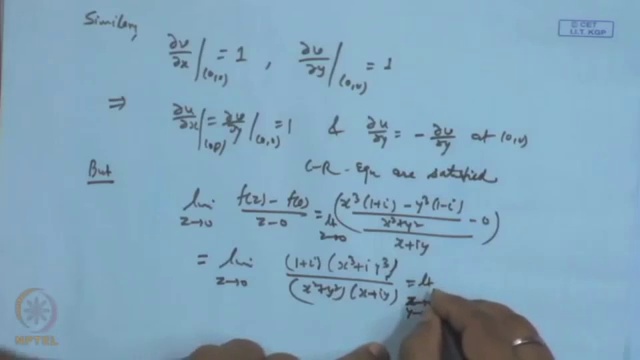 Similarly
© CET
I.I.T. KGP
∂v/∂x|(0,0) = 1 , ∂v/∂y|(0,0) = 1
⇒ ∂u/∂x|(0,0) = ∂v/∂y|(0,0) = 1 & ∂u/∂y = - ∂v/∂y at (0,0)
C-R-Equ are satisfied
But
lim z→0 f(z) - f(0) / z - 0 = Lt z→0 ( x³(1+i) - y³(1-i) / x²+y² - 0 / x+iy )
= lim z→0 (1+i) (x³+iy³) / (x²+y²) (x+iy) = Lt
NPTEL